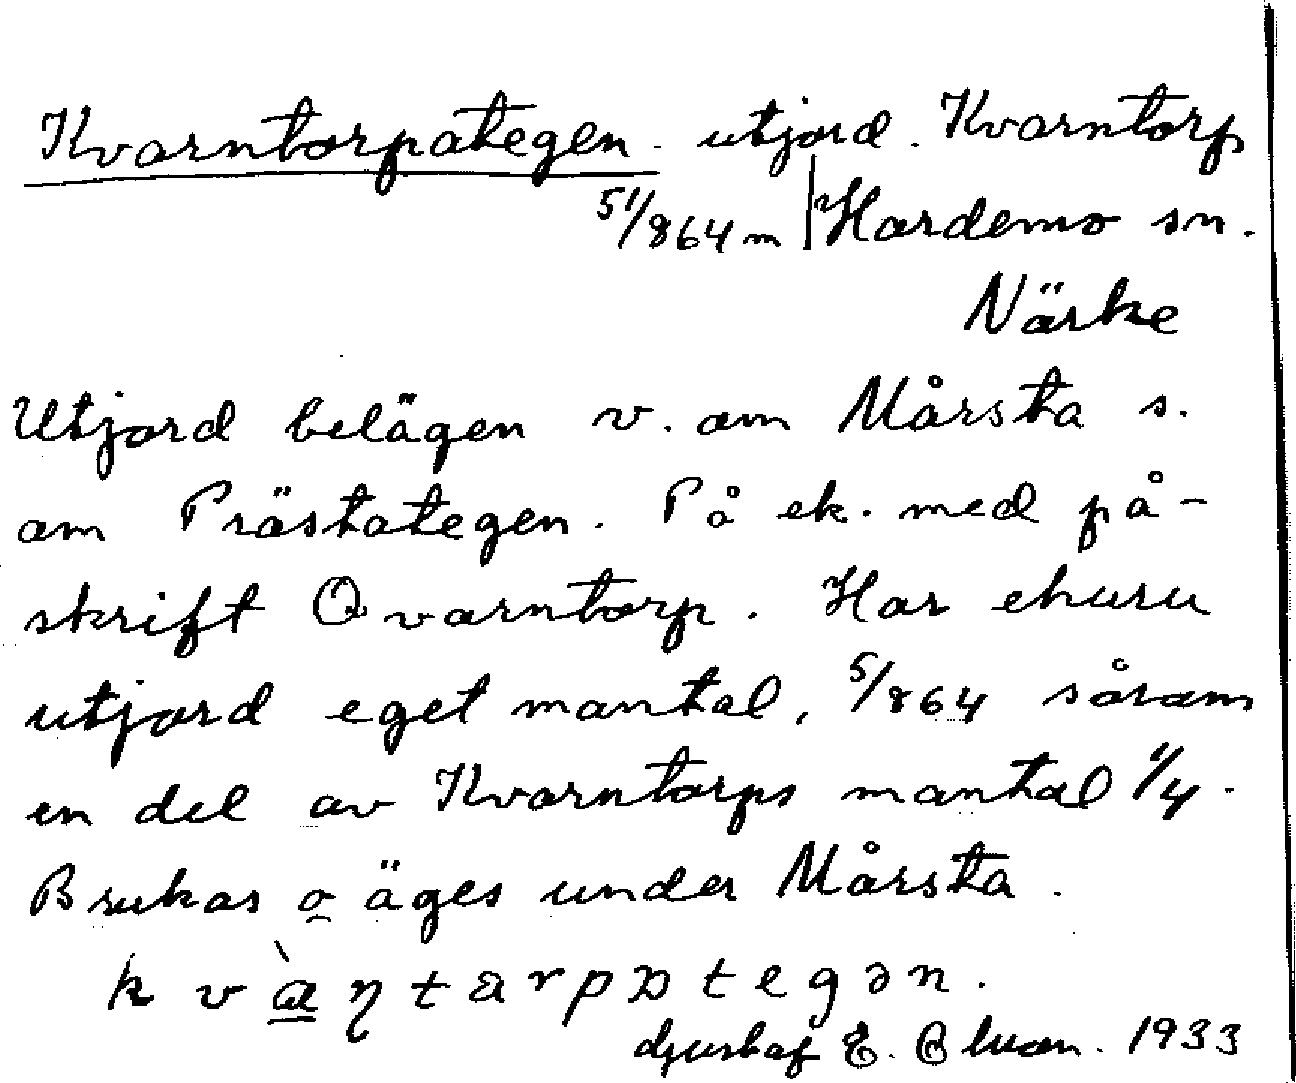 Kvarntorpategen. utjord. Kvarntorp
51/864 m | Hardemo sn.
Närke
Utjord belägen v. om Mårsta s.
om Prästategen. På ek. med på-
skrift Qvarntorp. Har ehuru
utjord eget mantal, 5/864 såsom
en del av Kvarntorps mantal 1/4.
Brukas o äges under Mårsta.
E. 1933